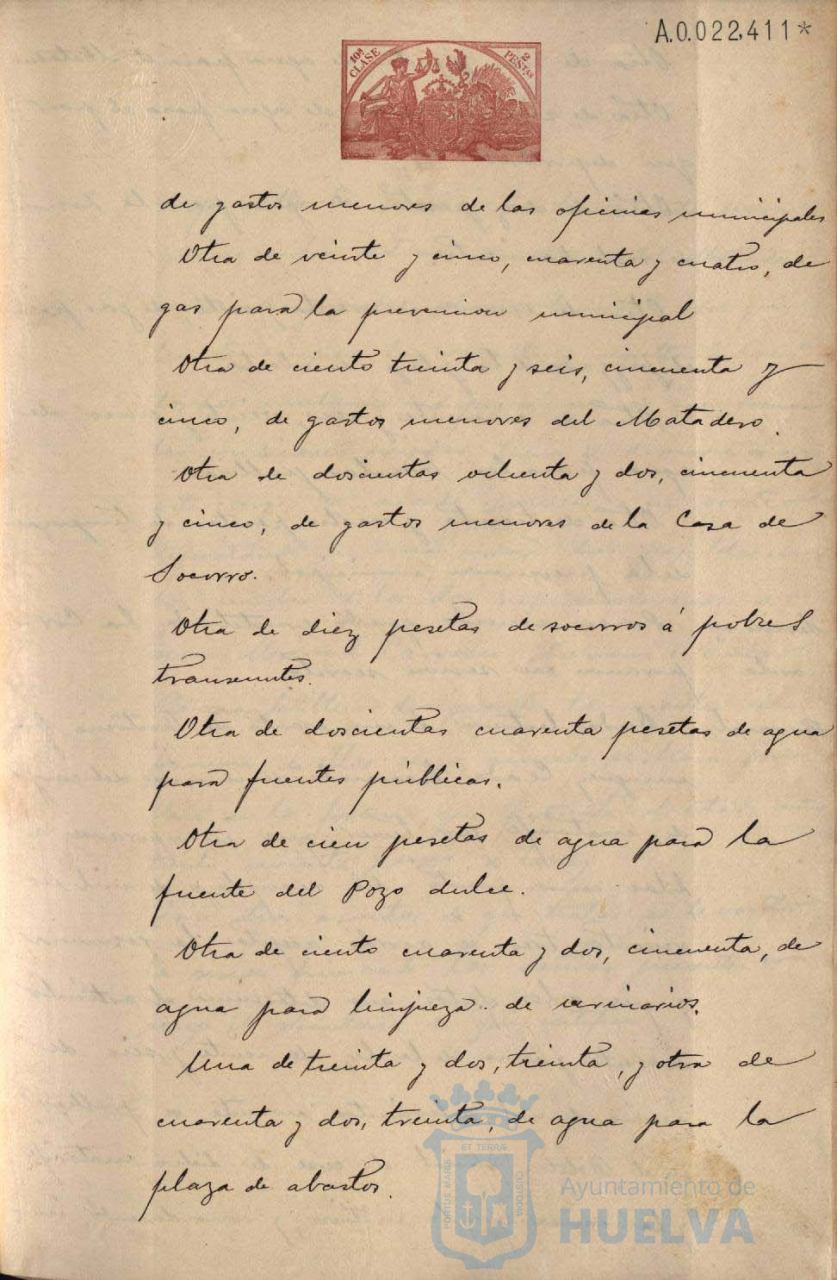 A.0.022,411*
10ª CLASE 2 PESETAS
de gastos menores de las oficinas municipales
Otra de veinte y cinco, cuarenta y cuatro, de
gas para la prevencion municipal
Otra de ciento treinta y seis, cincuenta y
cinco, de gastos menores del Matadero.
Otra de doscientas ochenta y dos, cincuenta
y cinco, de gastos menores de la Casa de
Socorro.
Otra de diez pesetas de socorros á pobres
transeuntes.
Otra de doscientas cuarenta pesetas de agua
para fuentes públicas.
Otra de cien pesetas de agua para la
fuente del Pozo dulce.
Otra de ciento cuarenta y dos, cincuenta, de
agua para limpieza de urinarios.
Una de treinta y dos, treinta, y otra de
cuarenta y dos, treinta, de agua para la
plaza de abastos.
PORTUS MARIS ET TERRÆ CUSTODIA
Ayuntamiento de
HUELVA